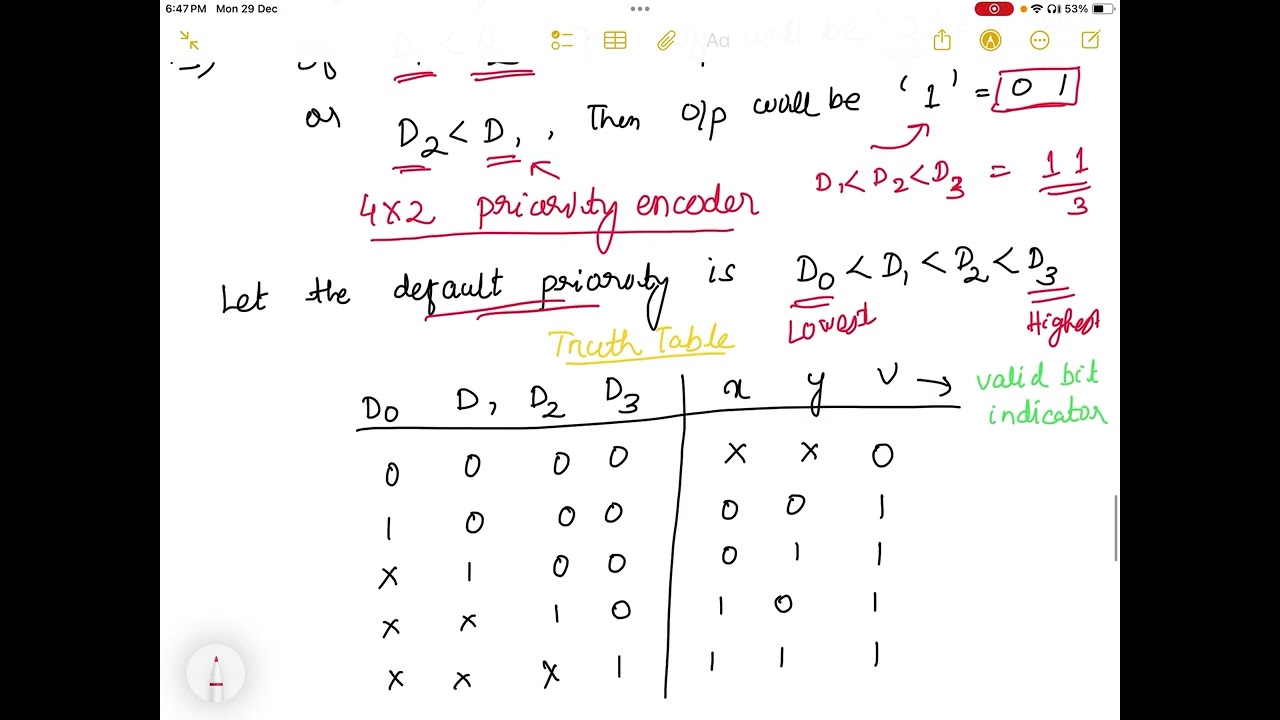 6:47 PM Mon 29 Dec 53%
Aa
or D2 < D1, Then o/p will be '1' = 0 1
D1 < D2 < D3 = 1 1
3
4x2 priority encoder
Let the default priority is D0 < D1 < D2 < D3
Lowest Highest
Truth Table
D0 D1 D2 D3 x y V → valid bit indicator
0 0 0 0 x x 0
1 0 0 0 0 0 1
x 1 0 0 0 1 1
x x 1 0 1 0 1
x x x 1 1 1 1